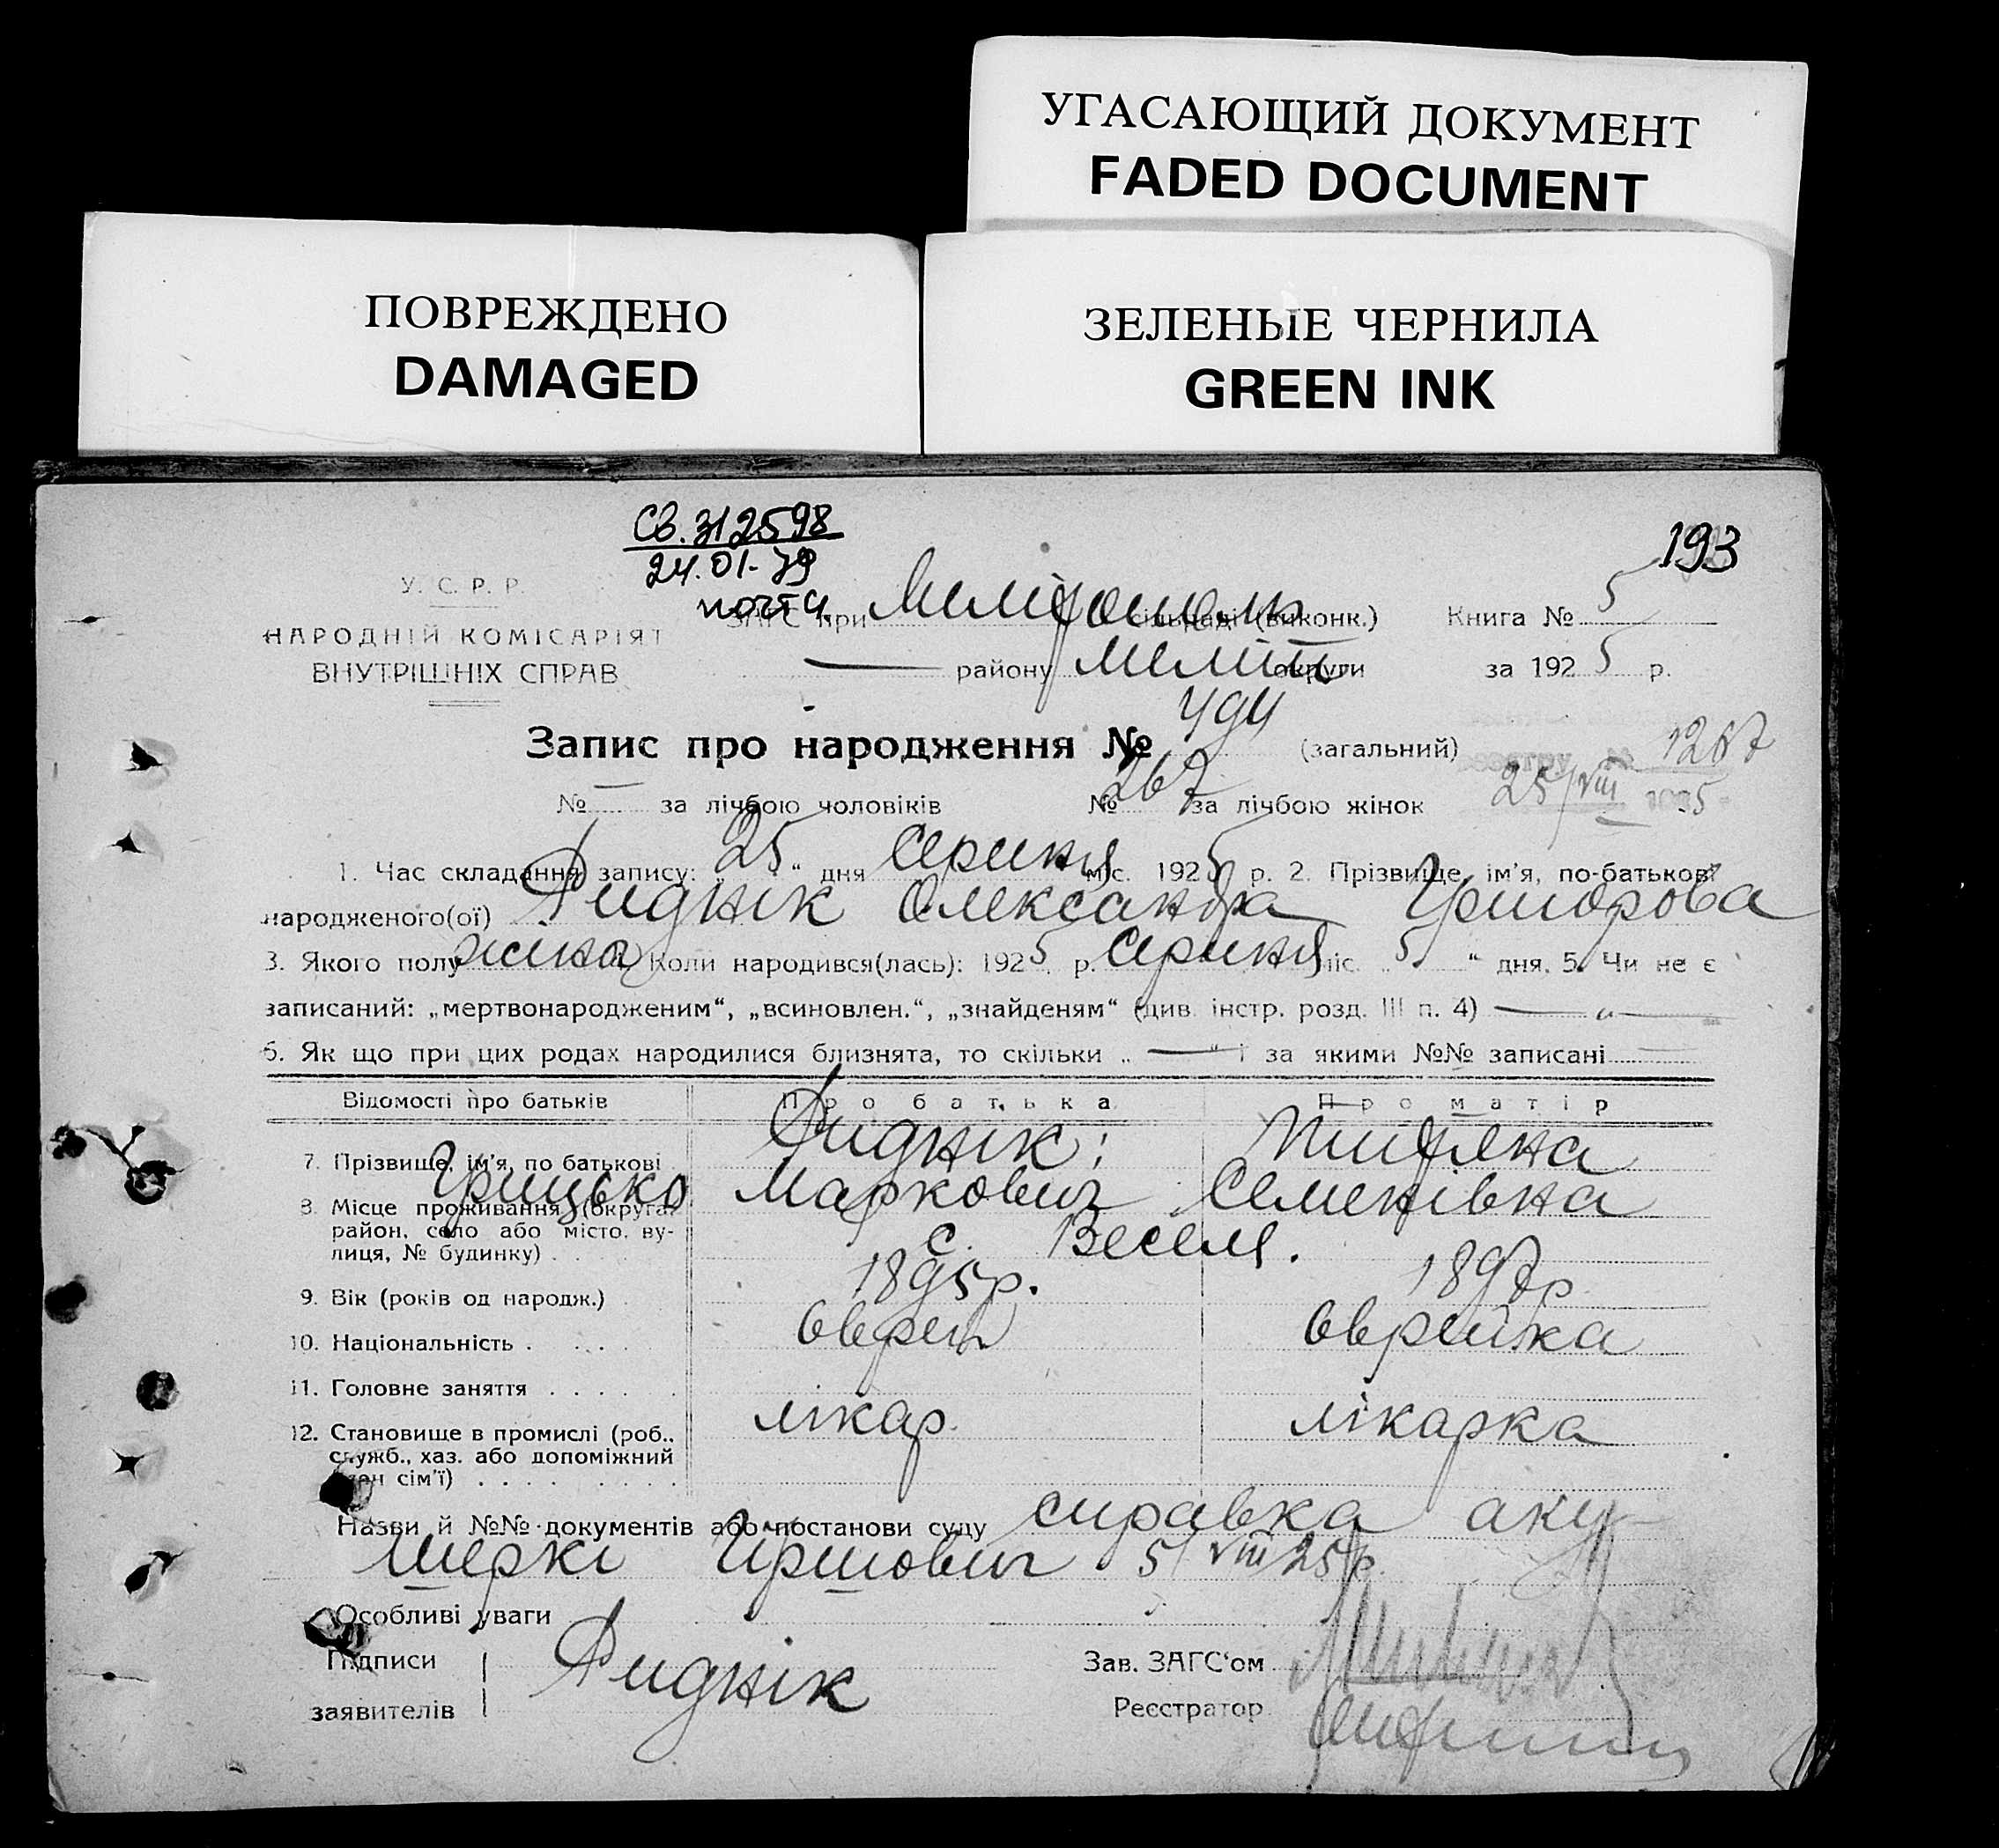 УГАСАЮЩИЙ ДОКУМЕНТ
FADED DOCUMENT
ПОВРЕЖДЕНО
DAMAGED
ЗЕЛЕНЫЕ ЧЕРНИЛА
GREEN INK
Св. 312598
24.01-79
193
У. С. Р. Р.
НАРОДНІЙ КОМІСАРІЯТ
ВНУТРІШНІХ СПРАВ
ЗАГС при Мелітополь сільраді (виконк.) Книга № 5
— району Меліт округи за 1925 р.
Запис про народження № 494 (загальний) 1267
№ — за лічбою чоловіків № 267 за лічбою жінок 25/VIII 1925
1. Час складання запису: 25 “ дня Серпня міс. 1925 р. 2. Прізвище, ім’я, по-батькові
народженого(ої) Риднік Олександра
3. Якого полу жіно 4. Коли народився(лась): 1925 р. Серпня міс. „5“ дня. 5. Чи не є
записаний: „мертвонародженим“, „всиновлен.“, „знайденям“ (див. інстр. розд. III п. 4) — „ —
6. Як що при цих родах народилися близнята, то скільки „ — “ і за якими №№ записані —
Відомості про батьків Про батька Про матір
7. Прізвище, ім’я, по батькові Риднік;
Грицько Маркович Семенівна
8. Місце проживання (округа,
район, село або місто, ву-
лиця, № будинку) . с. Весел.
9. Вік (років од народж.) 1895р. 1897р
10. Національність . . . . Єврей Єврейка
11. Головне заняття . . . . . .
лікар. лікарка
12. Становище в промислі (роб.,
служб., хаз. або допоміжний
член сім’ї) . . . . . . . .
Назви й №№ документів або постанови суду справка аку-
шерки Гіршович 5/VIII 25 р.
Особливі уваги
Підписи Риднік Зав. ЗАГС‘ом
заявителів Реєстратор